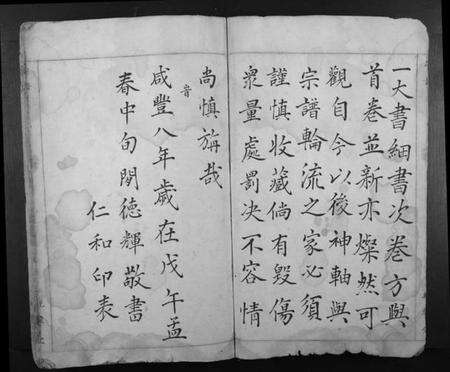 一大書細書次卷方與
首卷並新亦燦然可
觀自今以後神軸與
宗譜輪流之家必須
謹慎收藏倘有毀傷
衆量處罰決不容情
尚慎旃哉
音
咸豐八年歲在戊午孟
春中旬閉德輝敬書
仁和印表